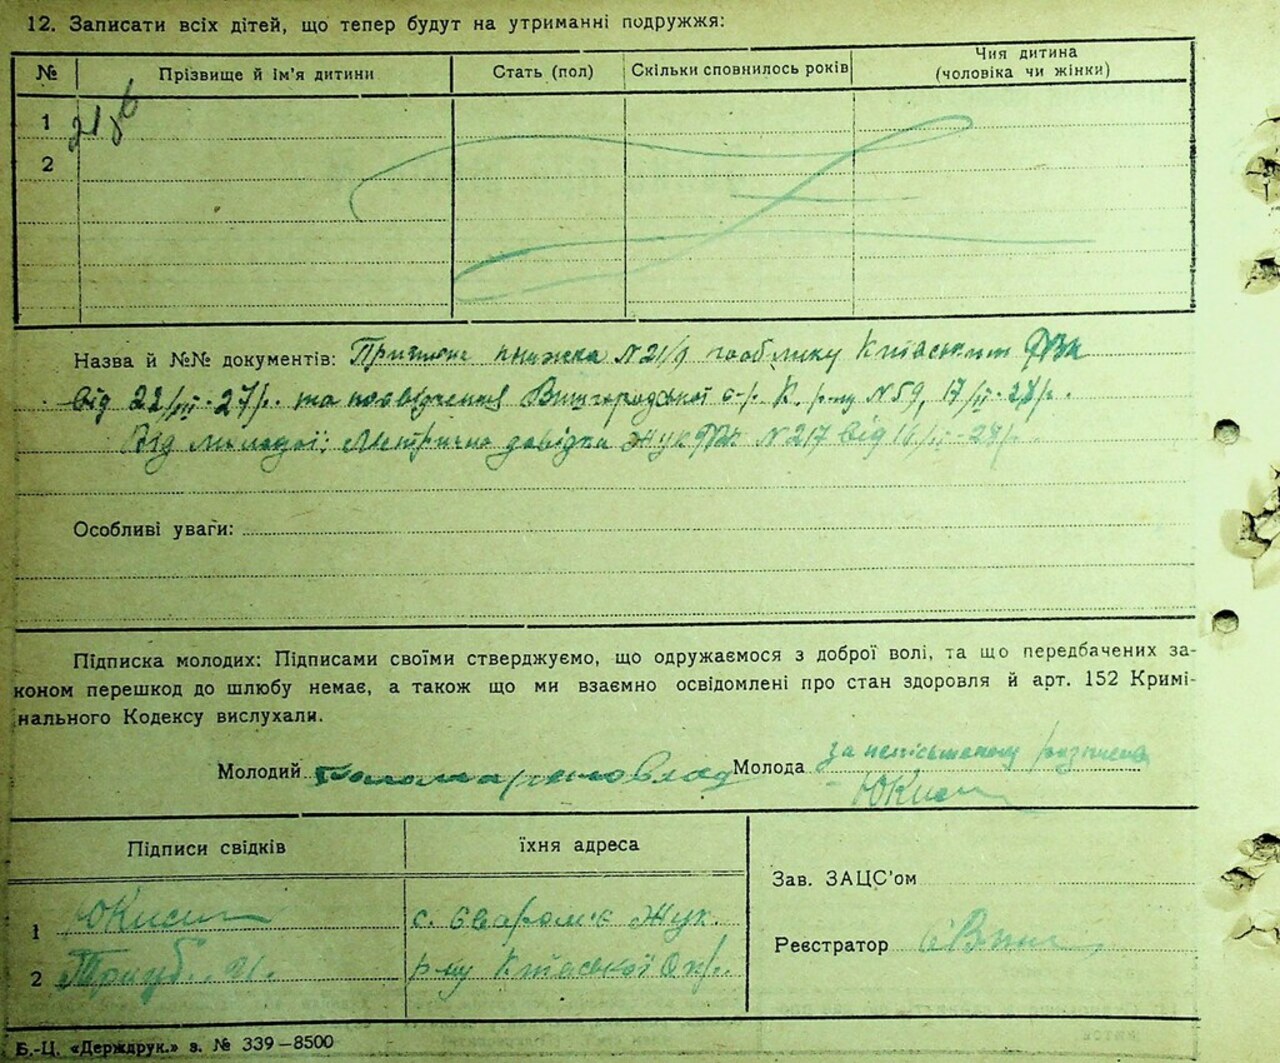 12. Записати всіх дітей, що тепер будут на утриманні подружжя:
№ Прізвище й ім'я дитини Стать (пол) Скільки сповнилось років Чия дитина (чоловіка чи жінки)
1
2
Назва й №№ документів: книжка N 21/ Київським
від 22/ 27/р. та посвідчення Вишгородської с-р. К. р-ну N 59, 17/II-28р.
Від молодої: Метрична довідка Жук N 217 від 16/II-28р.
Особливі уваги:
Підписка молодих: Підписами своїми стверджуємо, що одружаємося з доброї волі, та що передбачених за-
коном перешкод до шлюбу немає, а також що ми взаємно освідомлені про стан здоровля й арт. 152 Кримі-
нального Кодексу вислухали.
Молодий Молода за неписьменну
Підписи свідків їхня адреса
Зав. ЗАЦС'ом
1 с. Жук.
2 р-ну Київської Окр.
Реєстратор
Б.-Ц. «Держдрук.» з. № 339—8500